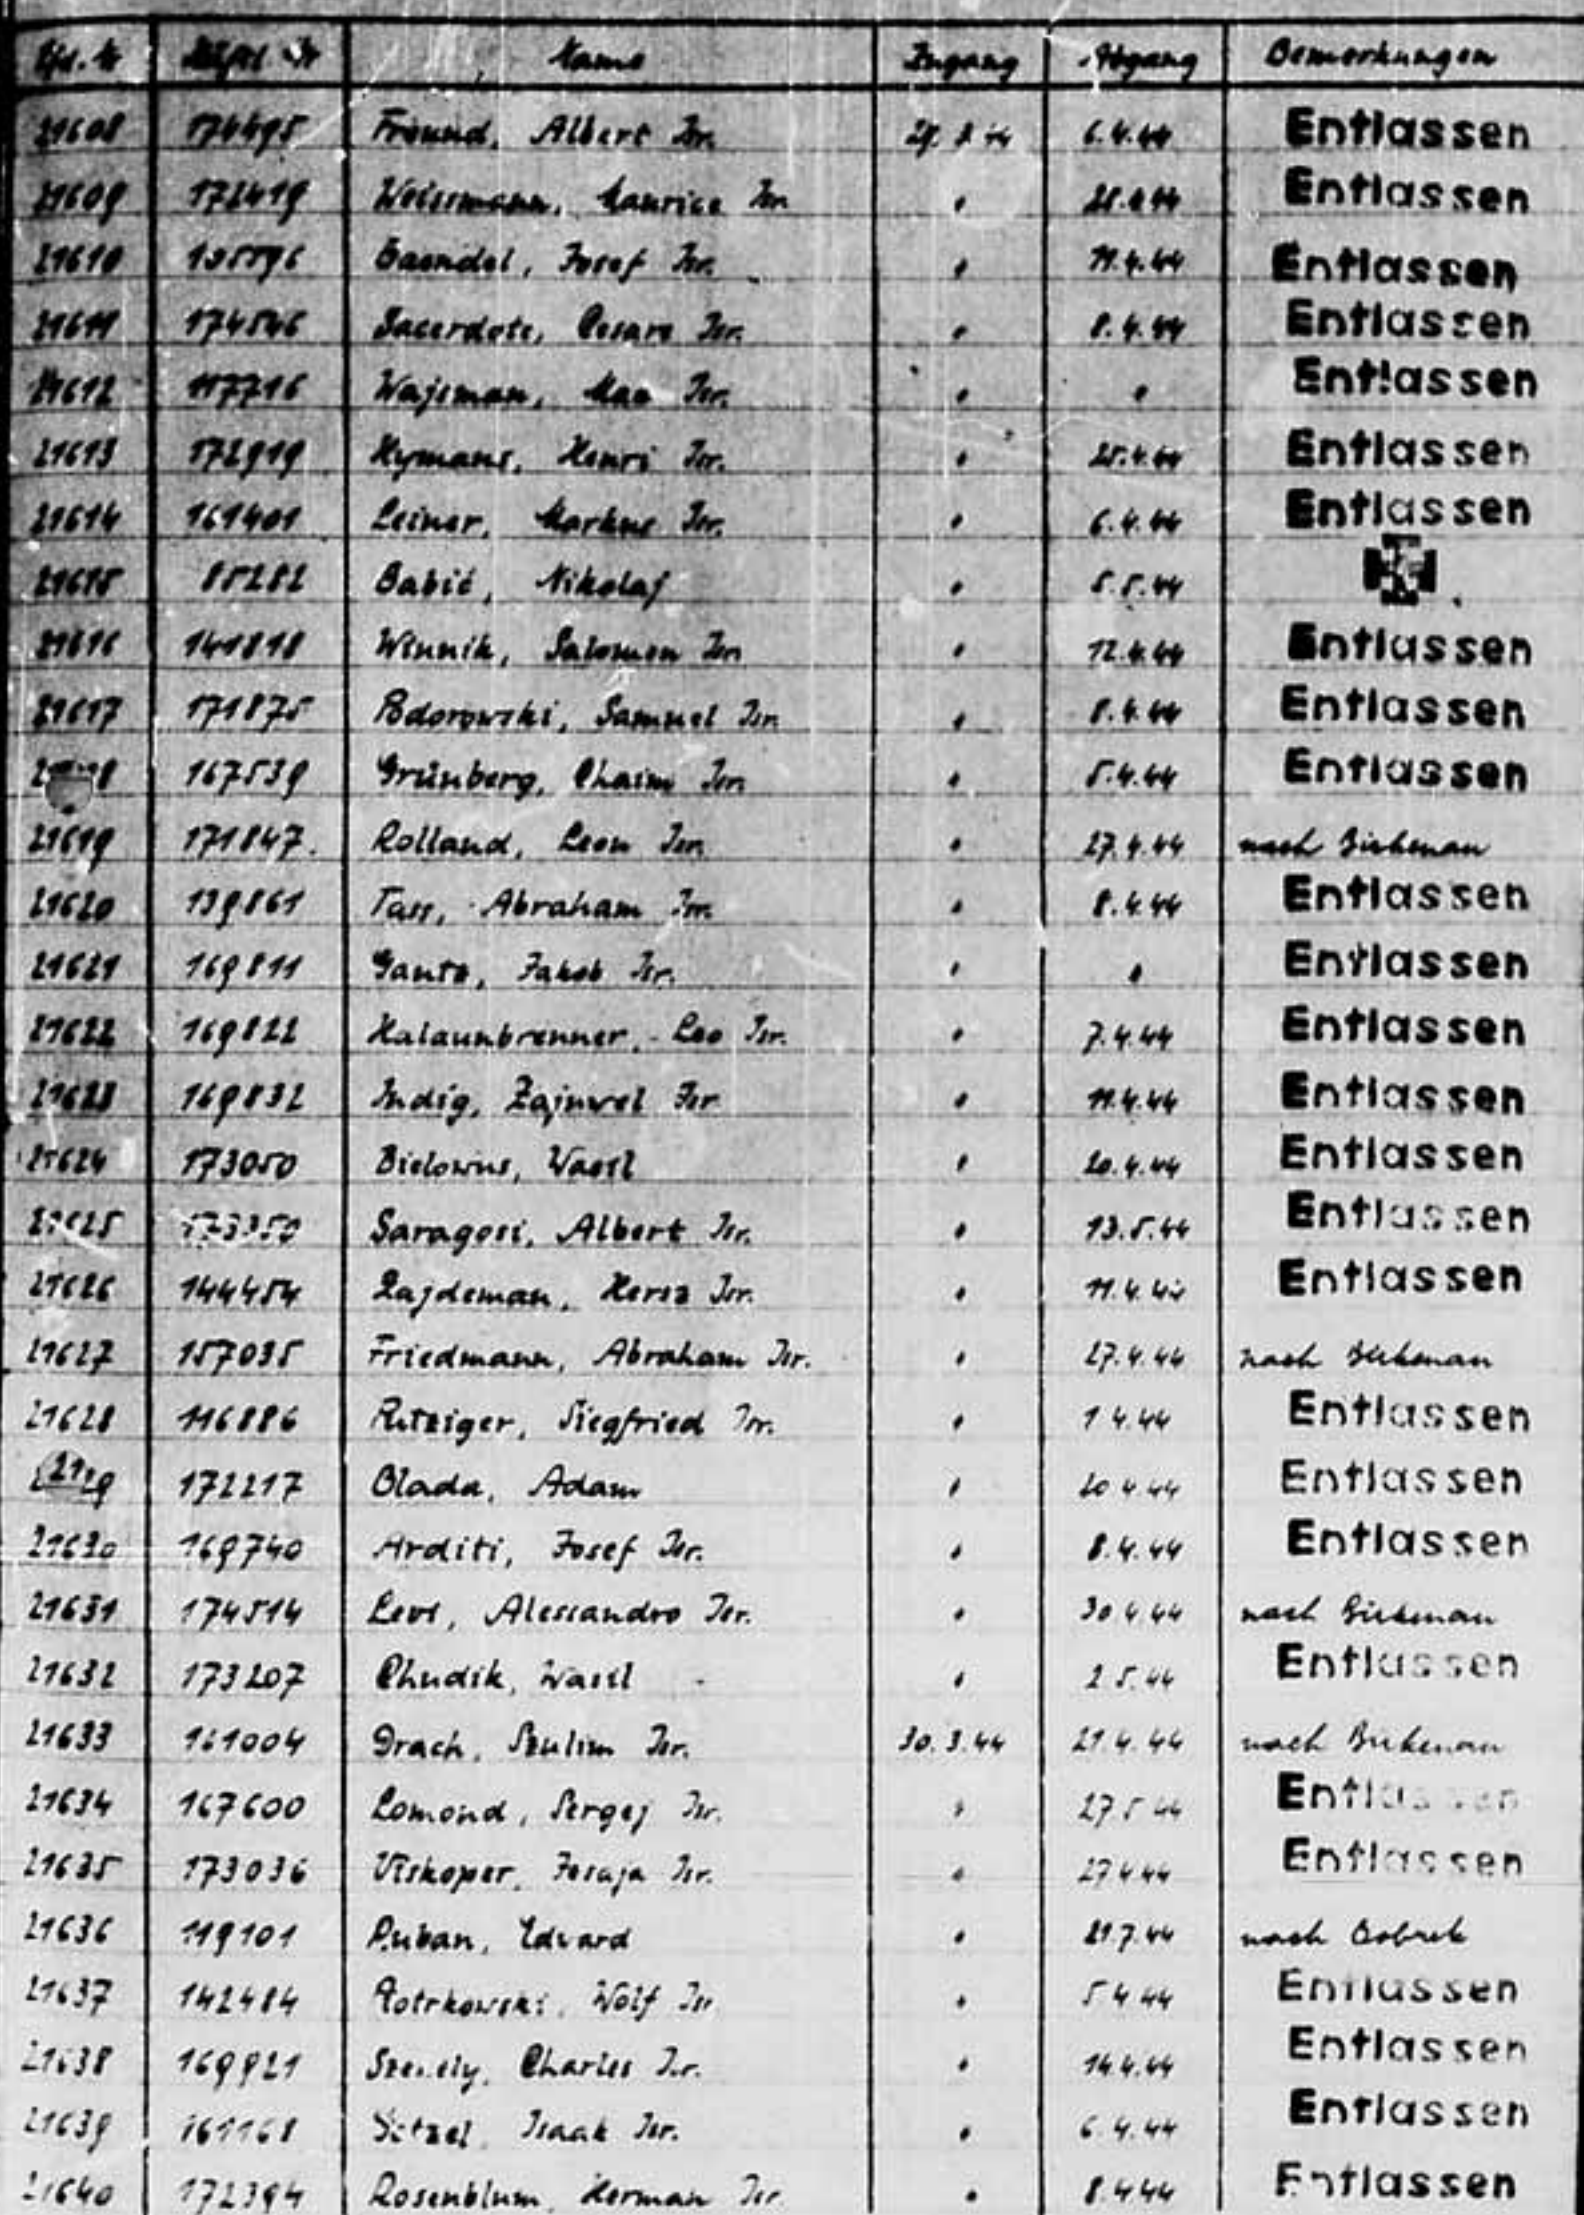 Lfd. Nr Name Zugang Abgang Bemerkungen
21608 174495 Freund, Albert Isr. 6.4.44 Entlassen
21609 172419 Weissmann, Maurice Isr. " Entlassen
21610 Josef Isr. " 11.4.44 Entlassen
21611 174546 Sacerdote, Cesare Isr. " 8.4.44 Entlassen
21612 117716 Wajsman, Max Isr. " " Entlassen
21613 172919 Hymans, Henri Isr. " 25.4.44 Entlassen
21614 161401 Leiner, Markus Isr. " 6.4.44 Entlassen
21615 85282 Babić, Nikolaj " 5.5.44
21616 141818 Winnik, Salomon Isr. " 12.4.44 Entlassen
21617 171875 Samuel Isr. " 8.4.44 Entlassen
167539 Grünberg, Chaim Isr. " 5.4.44 Entlassen
21619 171847. Rolland, Leon Isr. " 27.4.44 nach Birkenau
21620 139861 Tass, Abraham Isr. " 8.4.44 Entlassen
21621 169811 Gantz, Jakob Isr. " " Entlassen
21622 169822 Halaunbrenner, Leo Isr. " 7.4.44 Entlassen
21623 169832 Indig, Zajnwel Isr. " 11.4.44 Entlassen
21624 173050 Bielowus, Wasil " 20.4.44 Entlassen
21625 173350 Saragosi, Albert Isr. " 13.5.44 Entlassen
21626 144454 Zajdeman, Hersz Isr. " 11.4.44 Entlassen
21627 157035 Friedmann, Abraham Isr. " 27.4.44 nach Birkenau
21628 116886 Ritziger, Siegfried Isr. " 1 4.44 Entlassen
172217 Blada, Adam " 20 4 44 Entlassen
21630 169740 Arditi, Josef Isr. " 8.4.44 Entlassen
21631 174514 Levi, Alessandro Isr. " 30 4 44 nach Birkenau
21632 173207 Chudik, Wasil " 2 5.44 Entlassen
21633 161004 Drach, Szulim Isr. 30.3.44 21 4.44 nach Birkenau
21634 167600 Lomond, Sergej Isr. " 27 5 44 Entlassen
21635 173036 Viskoper, Jesaja Isr. " 27 4 44 Entlassen
21636 119101 Ruban, Edward " 21.7.44 nach Bobrek
21637 142484 Piotrkowski, Wolf Isr " 5 4 44 Entlassen
21638 169921 Charles Isr. " 14.4.44 Entlassen
21639 161168 Isaak Isr. " 6 4.44 Entlassen
21640 172394 Rosenblum, Herman Isr " 8.4 44 Entlassen